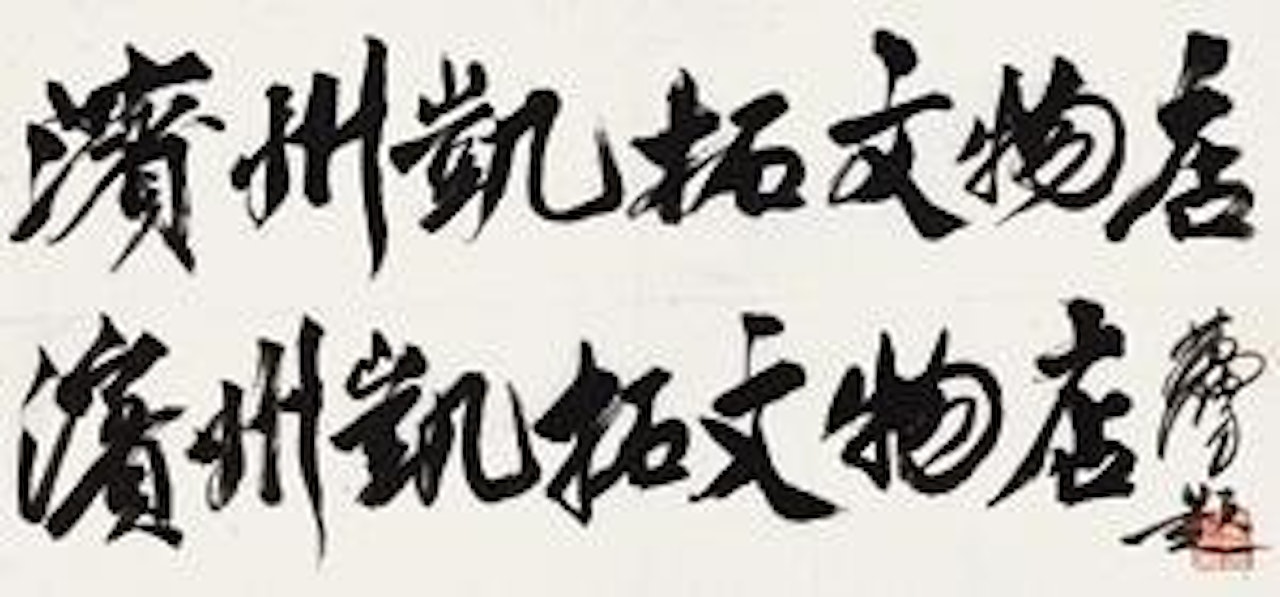 濱州凱拓文物店
濱州凱拓文物店
題